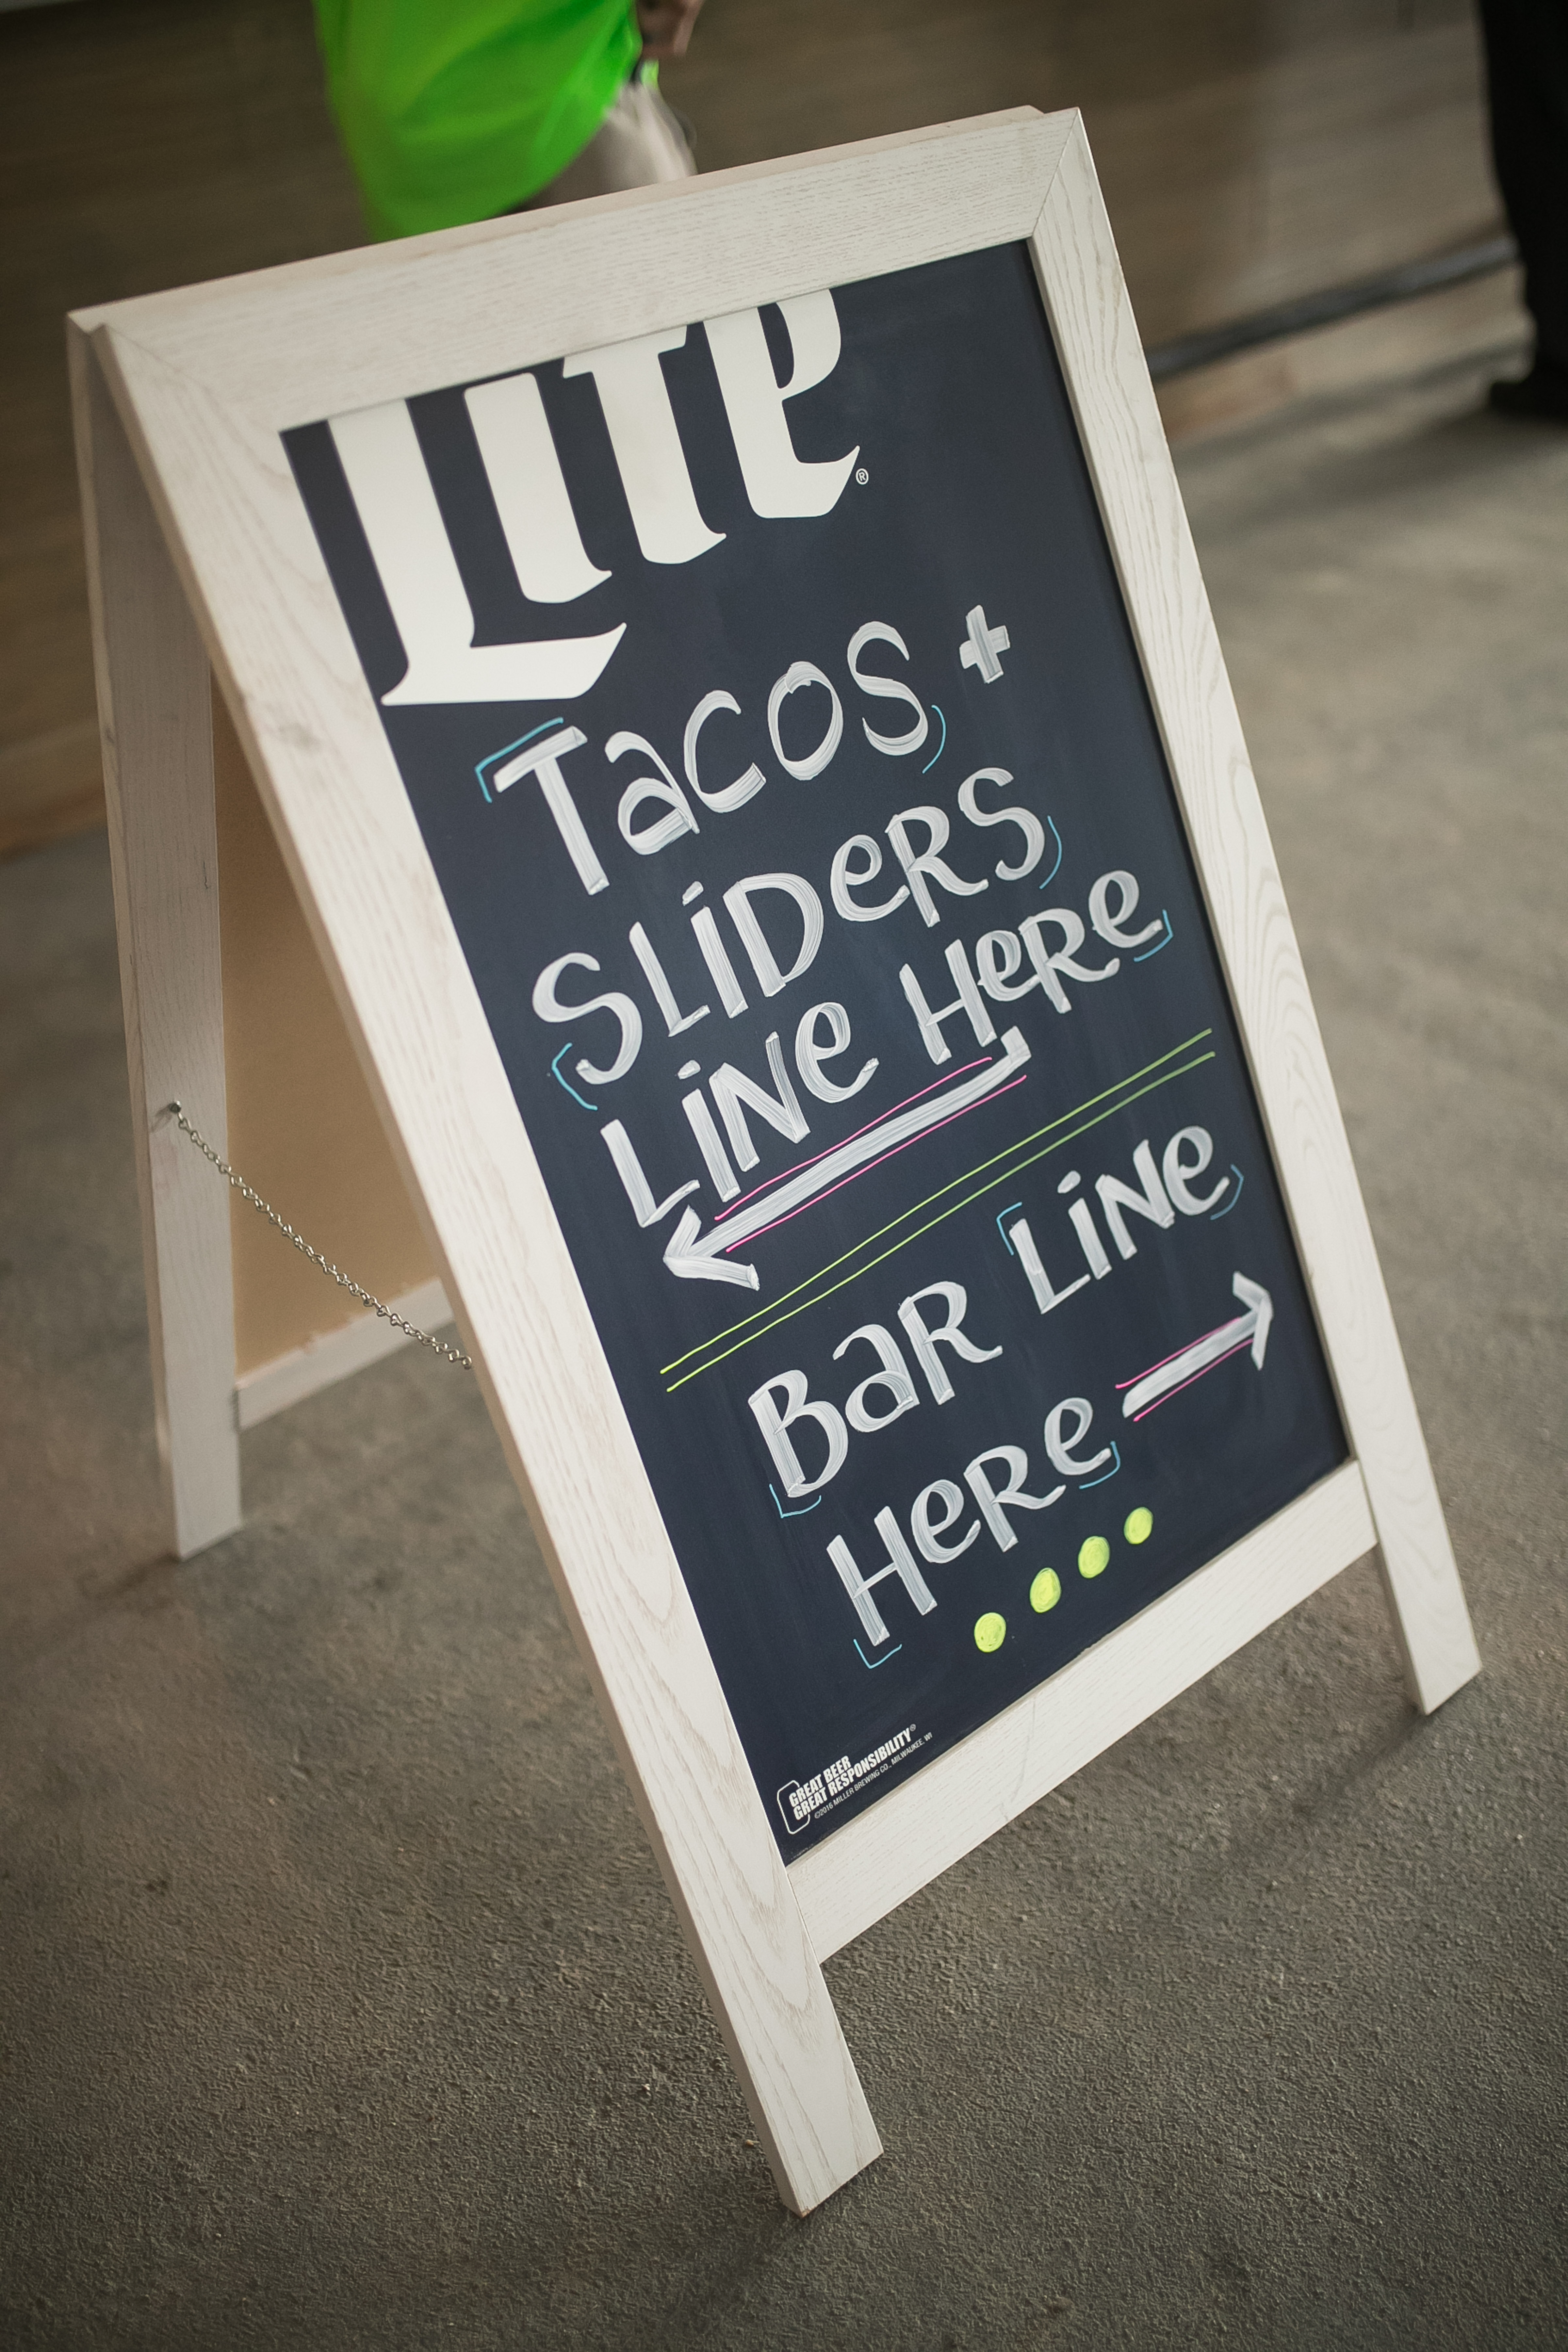 Lite®
TacoS +
SLiDeRS
LiNe HeRe
BaR LiNe
HeRe
GREAT BEER
GREAT RESPONSIBILITY®
©2016 MILLER BREWING CO., MILWAUKEE, WI